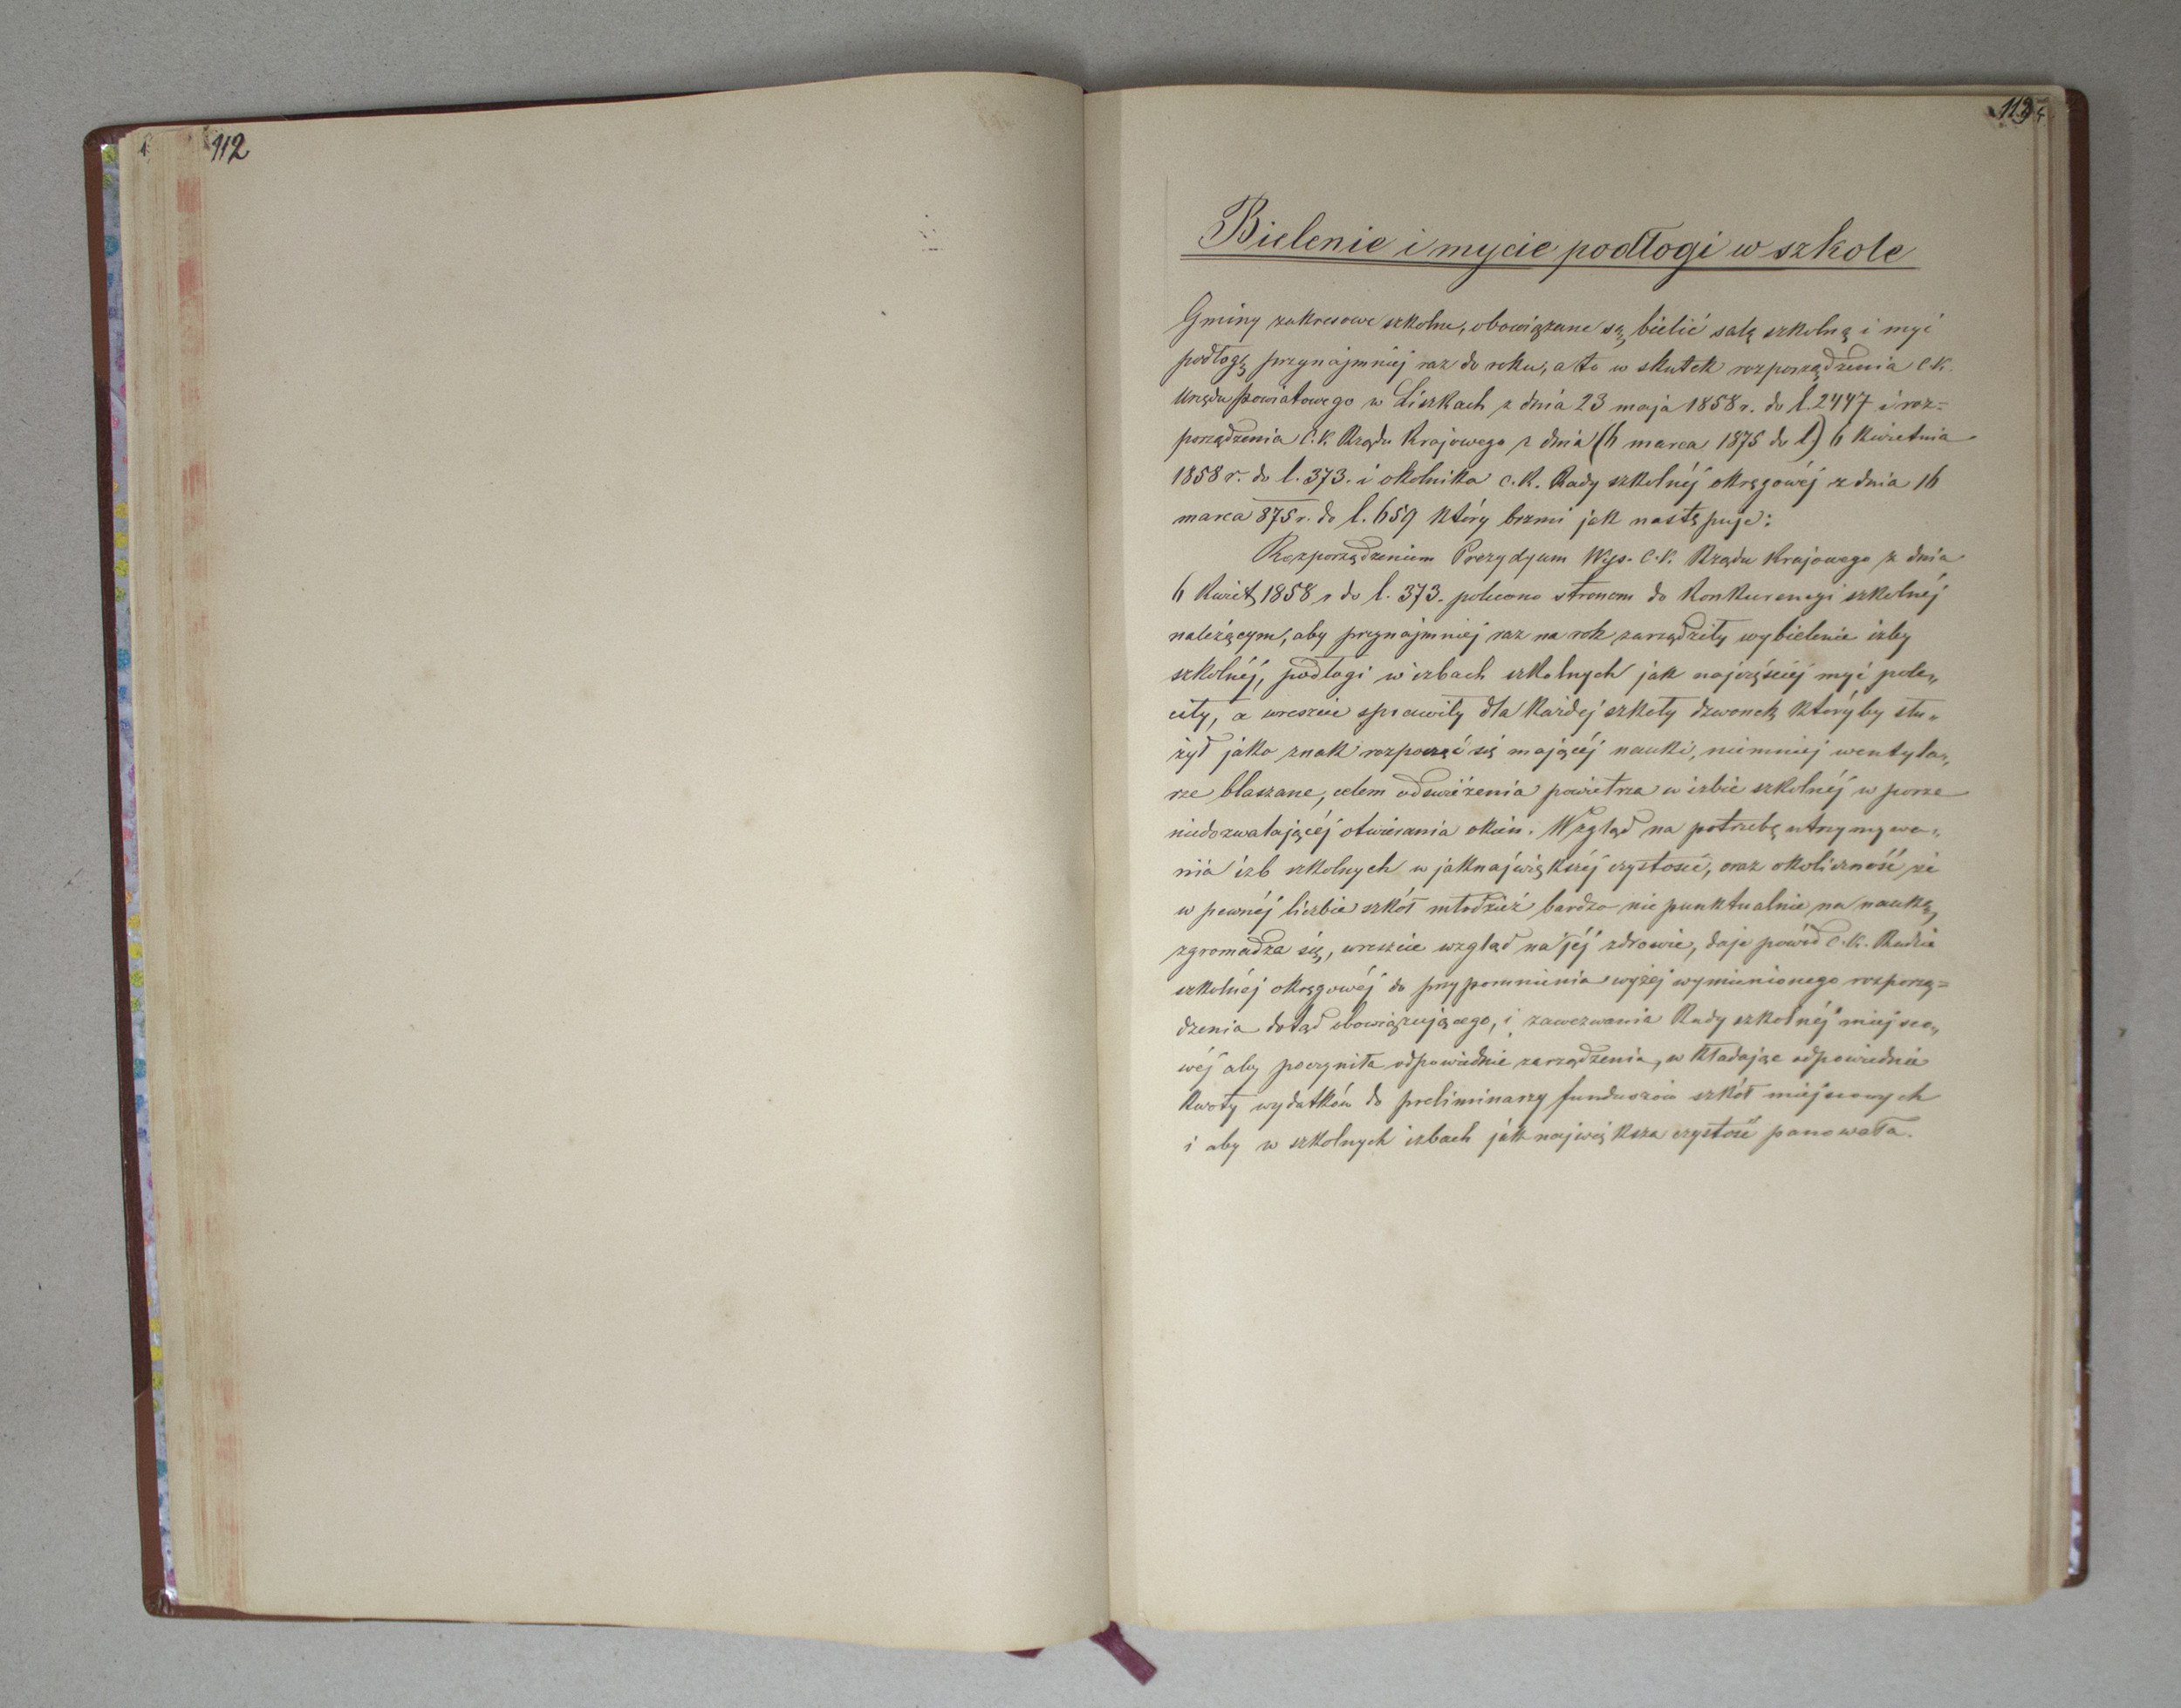 112
113
Bielenie i mycie podłogi w szkole
Gminy zakresowe szkolne, obowiązane są, bielić salę szkolną i myć
podłogę przynajmniej raz do roku, a to w skutek rozporządzenia c.k.
Urzędu powiatowego w Liszkach z dnia 23 maja 1858 r. do l. 2447 i roz=
porządzenia C. K. Rządu Krajowego z dnia (6 marca 1875 do l) 6 kwietnia
1858 r. do l. 373. i okólnika c. K. Rady szkolnéj okręgowéj z dnia 16
marca 875 r. do l. 659 który brzmi jak następuje:
Rozporządzeniem Prezydyum Wys. C. K. Rządu Krajowego z dnia
6 Kwiet, 1858 r do l. 373. polecono stronom do Konkurencyi szkolnéj
należącym, aby przynajmniej raz na rok zarządziły wybielenie izby
szkolnéj, podłogi w izbach szkolnych jak najczęściej myć pole„
ciły, a wreszcie sprawiły dla każdej szkoły dzwonek, któryby słu„
żył jako znak rozpocząć się mającéj nauki, niemniej wentyla„
rze blaszane, celem odświeżenia powietrza w izbie szkolnéj w porze
niedozwalającéj otwierania okien. Wzgląd na potrzebę utrzymywa„
nia izb szkolnych w jaknajwiększéj czystości, oraz okoliczność że
w pewnéj liczbie szkół młodzież bardzo nie punktualnie na naukę,
zgromadza się, wreszcie wzgląd na jéj zdrowie, daje powód c. K. Radzie
szkolnéj okręgowéj do przypomnienia wyżej wymienionego rozporzą=
dzenia dotąd obowiązującego, i zawezwania Rady szkolnéj miejsco„
wéj aby poczyniła odpowiednie zarządzenia, w kładając odpowiednie
Kwoty wydatków do preliminarzy funduszów szkół miejscowych
i aby w szkolnych izbach jak największa czystość panowała.